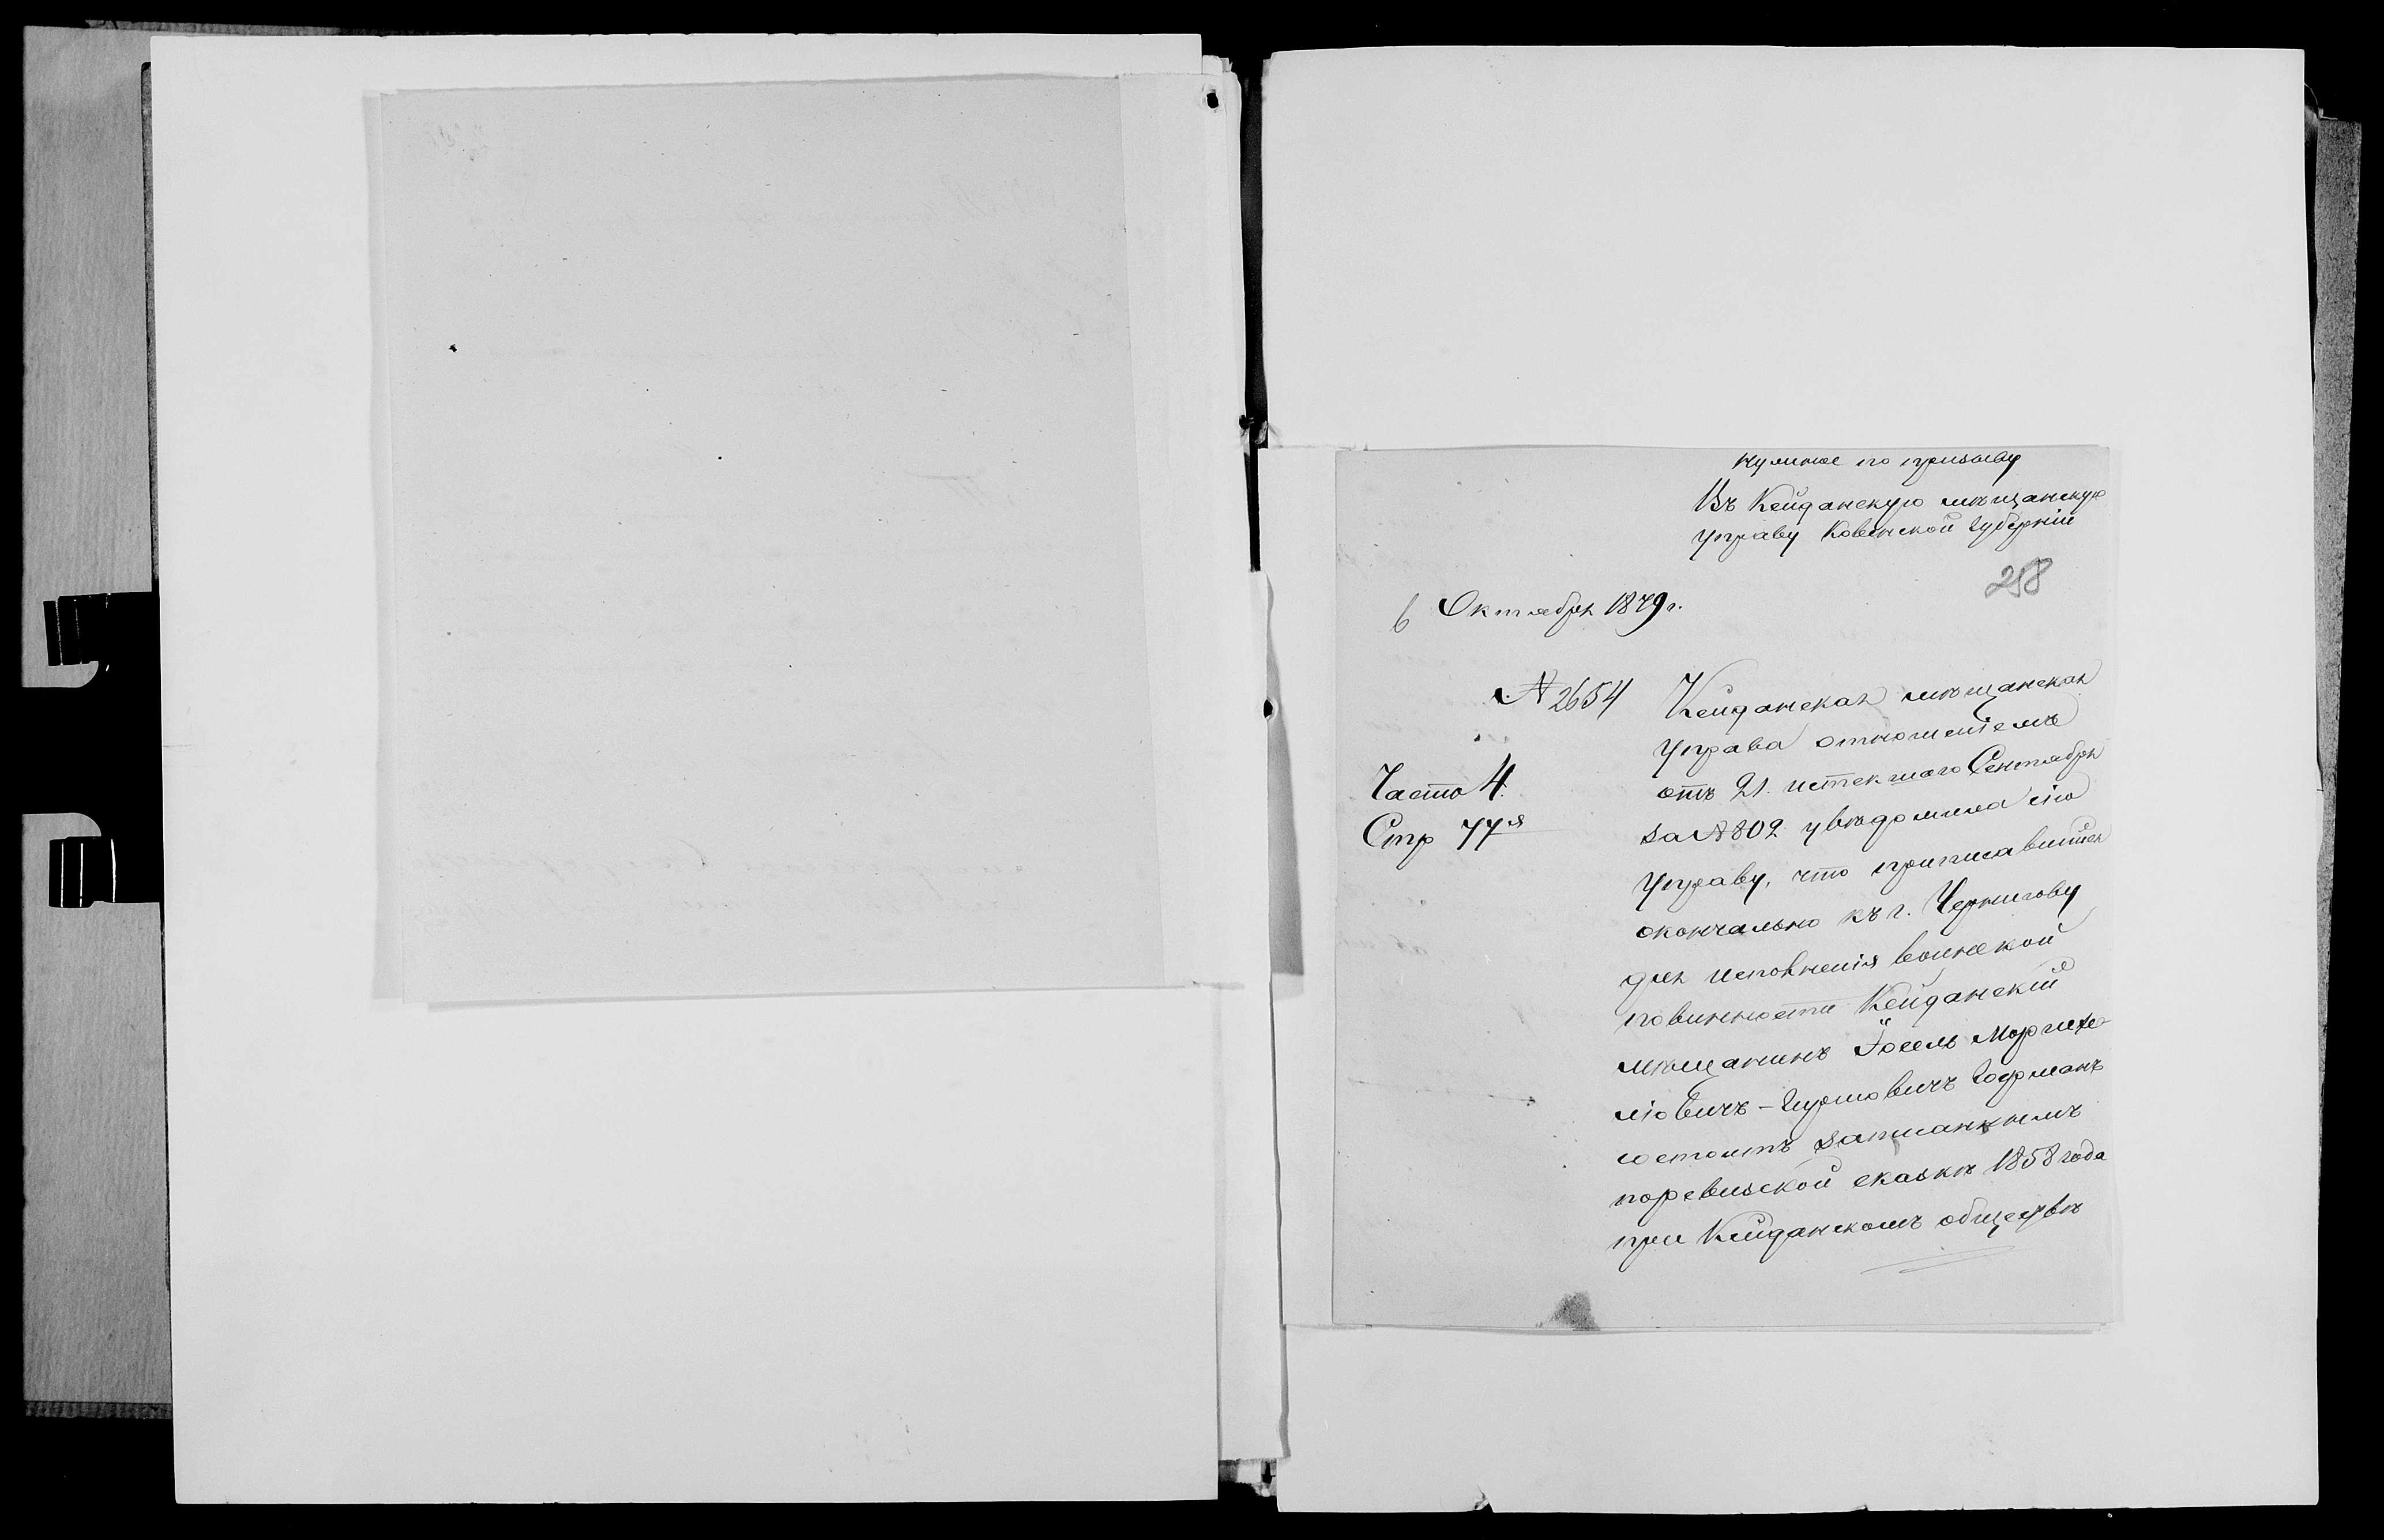 нужное по призыву
Въ Кейданскую мѣщанскую
управу Ковенской Губерніи
258
6 Октября 1879 г.
№ 2654
Часть 4.
Стр 77я
Кейданская мѣщанская
Управа отношеніемъ
отъ 21. истекшаго Сентября
за № 802 увѣдомила сію
Управу, что приписавшійся
окончально къ г. Чернигову
для исполненія воинской
повинности Кейданскій
мѣщанинъ Іосель Моргухе-
ліовичъ-Гиршовичъ Гофманъ
состоитъ записаннымъ
поревизской сказкѣ 1858 года
при Кейданскомъ обществѣ